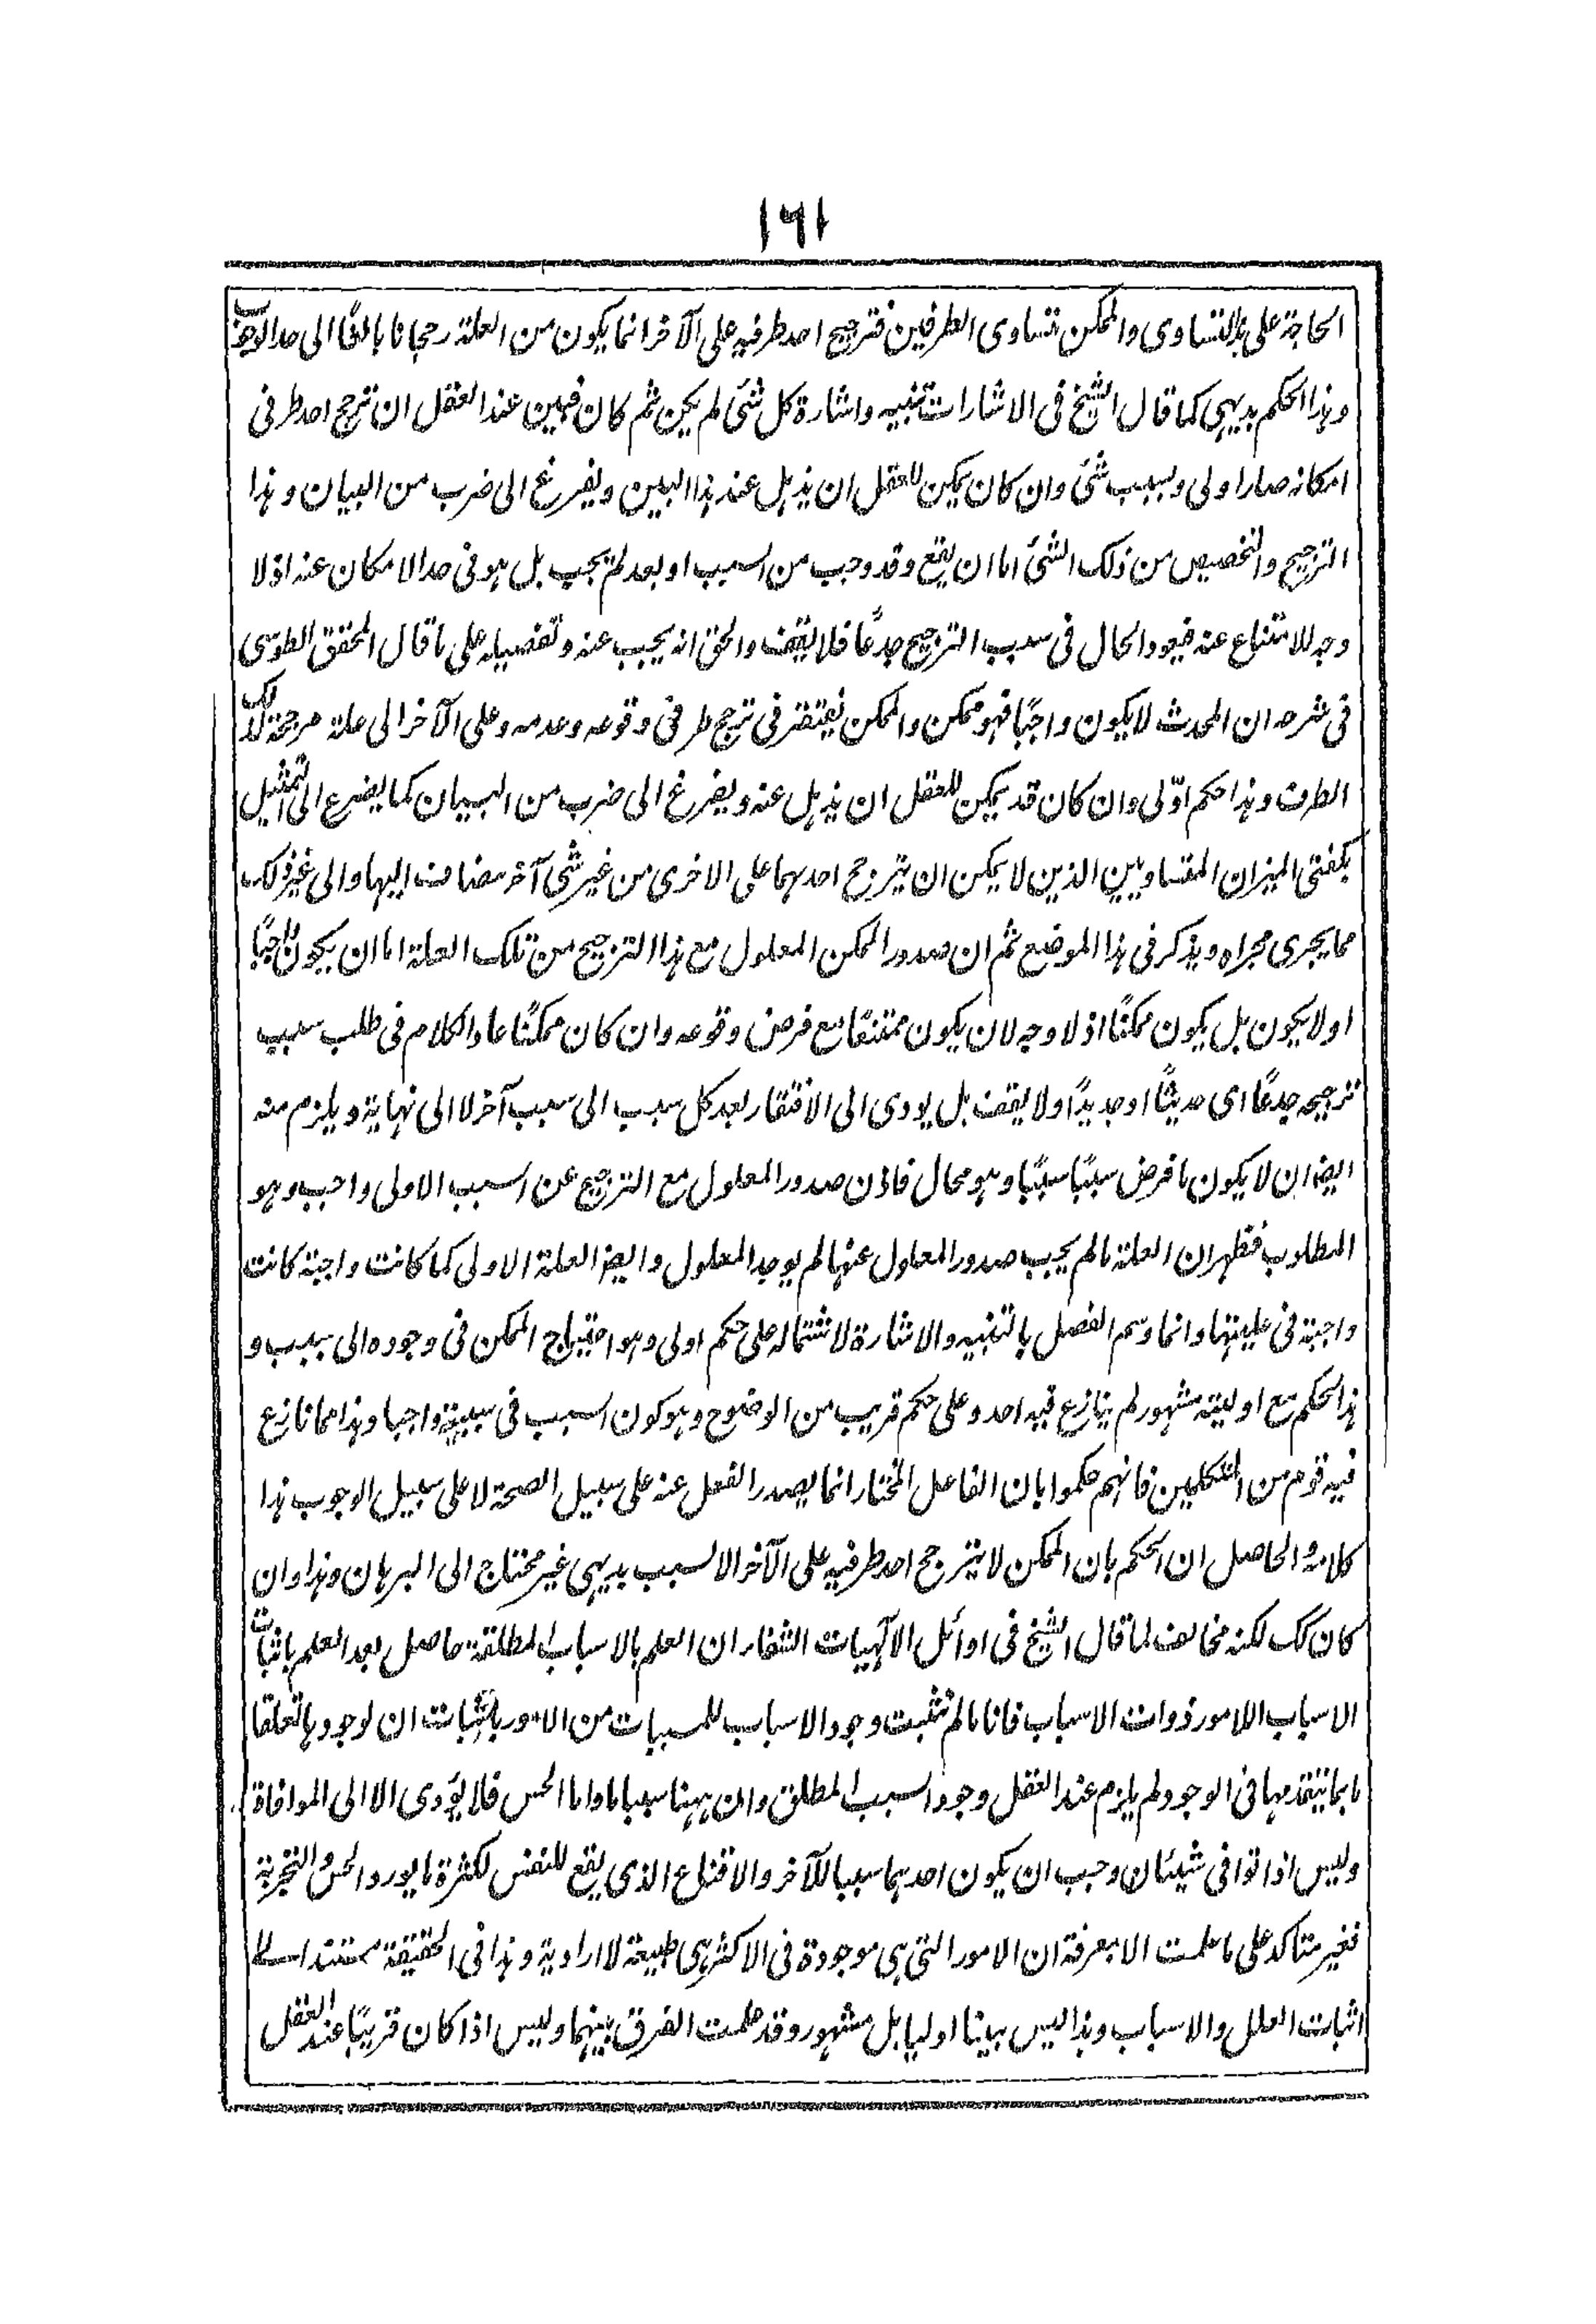 ١٦١
الحاجة على هذا التساوى والممكن متساوى الطرفين فترجيح احد طرفيه على الآخر انما يكون من العلة رجحانا بالغًا الى حد الوجوب
وهذا الحكم بديهى كما قال الشيخ فى الاشارات تنبيه واشارة كل شئ لم يكن ثم كان فبين عند العقل ان ترجح احد طرفى
امكانه صار اولى وبسبب شئ وان كان يمكن للعقل ان يذهل عند هذا البين ويفرغ الى ضرب من البيان وهذا
الترجيح والتخصيص من ذلك الشئ اما ان يقع وقد وجب من السبب او بعد لم يجب بل هو فى حد الامكان عنه اذ لا
وجه للامتناع عنه فيعود الحال فى سبب الترجيح جدعًا فلا يقف والحق انه يجب عنه وتفصيله على ما قال المحقق الطوسى
فى شرحه ان المحدث لا يكون واجبًا فهو ممكن والممكن يفتقر فى ترجح طرفى وقوعه وعدمه وعلى الآخر الى علة مرجحة لذلك
الطرف وهذا حكم اوّلى وان كان قد يمكن للعقل ان يذهل عنه ويفرغ الى ضرب من البيان كما يضرع الى التمثيل
بكفتى الميزان المتساويين الذين لا يمكن ان يترجح احدهما على الاخرى من غير شئ آخر مضاف اليهما والى غير ذلك
مما يجرى مجراه ويذكر فى هذا الموضع ثم ان صدور الممكن المعلول مع هذا الترجيح من تلك العلة اما ان يكون واجبًا
او لا يكون بل يكون ممكنًا اذ لا وجه لان يكون ممتنعًا مع فرض وقوعه وان كان ممكنًا عاد الكلام فى طلب سبب
ترجيحه جدعًا اى حديثًا او جديدًا ولا يقف بل يودى الى الافتقار بعد كل سبب الى سبب آخر لا الى نهاية ويلزم منه
ايضا ان لا يكون ما فرض سببًا سببًا وهو محال فاذن صدور المعلول مع الترجيح عن السبب الاولى واجب وهو
المطلوب فظهر ان العلة ما لم يجب صدور المعلول عنها لم يوجد المعلول وايضا العلة الاولى كما كانت واجبة كانت
واجبة فى عليتها وانما وسم الفصل بالتنبيه والاشارة لاشتماله على حكم اولى وهو احتياج الممكن فى وجوده الى سبب و
هذا الحكم مع اوليته مشهور لم ينازع فيه احد وعلى حكم قريب من الوضوح وهو كون السبب فى سببيته واجبا وهذا مما نازع
فيه قوم من المتكلمين فانهم حكموا بان الفاعل المختار انما يصدر الفعل عنه على سبيل الصحة لا على سبيل الوجوب هذا
كلامه والحاصل ان الحكم بان الممكن لا يترجح احد طرفيه على الآخر الا لسبب بديهى غير محتاج الى البرهان وهذا وان
كان كك لكنه مخالف لما قال الشيخ فى اوائل الآلهيات الشفاء ان العلم بالاسباب المطلقة حاصل بعد العلم باثبات
الاسباب اللامور ذوات الاسباب فانا ما لم نثبت وجود الاسباب للمسببات من الامور باثبات ان لوجودها تعلقا
ما بما يتقدمها فى الوجود لم يلزم عند العقل وجود السبب المطلق وان ههنا سببا ما واما الحس فلا يؤدى الا الى الموافاة
وليس اذا توافى شيئان وجب ان يكون احدهما سببا للآخر والاقناع الذى يقع للنفس لكثرة ما يورد الحس والتجربة
فغير متاكد على ما علمت الا بمعرفة ان الامور التى هى موجودة فى الاكثر هى طبيعة لا ارادية وهذا فى الحقيقة مستند الى
اثبات العلل والاسباب وهذا ليس بينا اوليا بل مشهور وقد علمت الفرق بينهما وليس اذا كان قريبًا عند العقل